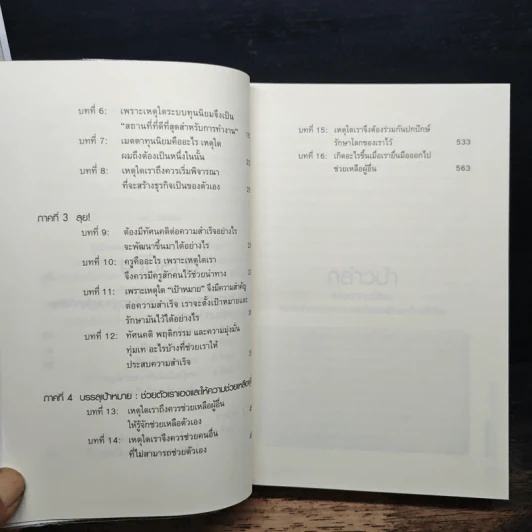 บทที่ 6: เพราะเหตุใดระบบทุนนิยมจึงเป็น
"สถานที่ที่ดีที่สุดสำหรับการทำงาน"
บทที่ 7: เมตตาทุนนิยมคืออะไร เหตุใด
ผมถึงต้องเป็นหนึ่งในนั้น
บทที่ 8: เหตุใดเราถึงควรเริ่มพิจารณา
ที่จะสร้างธุรกิจเป็นของตัวเอง
ภาคที่ 3 ลุย!
บทที่ 9: ต้องมีทัศนคติต่อความสำเร็จอย่างไร
จะพัฒนาขึ้นมาได้อย่างไร
บทที่ 10: ครูคืออะไร เพราะเหตุใดเรา
จึงควรมีครูสักคนไว้ช่วยนำทาง
บทที่ 11: เพราะเหตุใด "เป้าหมาย" จึงมีความสำคัญ
ต่อความสำเร็จ เราจะตั้งเป้าหมายและ
รักษามันไว้ได้อย่างไร
บทที่ 12: ทัศนคติ พฤติกรรม และความมุ่งมั่น
ทุ่มเท อะไรบ้างที่ช่วยเราให้
ประสบความสำเร็จ
ภาคที่ 4 บรรลุเป้าหมาย : ช่วยตัวเราเองและให้ความช่วยเหลือ
บทที่ 13: เหตุใดเราถึงควรช่วยเหลือผู้อื่น
ให้รู้จักช่วยเหลือตัวเอง
บทที่ 14: เหตุใดเราจึงควรช่วยคนอื่น
ที่ไม่สามารถช่วยตัวเอง
บทที่ 15: เหตุใดเราจึงต้องร่วมกันปกปักษ์
รักษาโลกของเราไว้ 533
บทที่ 16: เกิดอะไรขึ้นเมื่อเรายื่นมือออกไป
ช่วยเหลือผู้อื่น 563